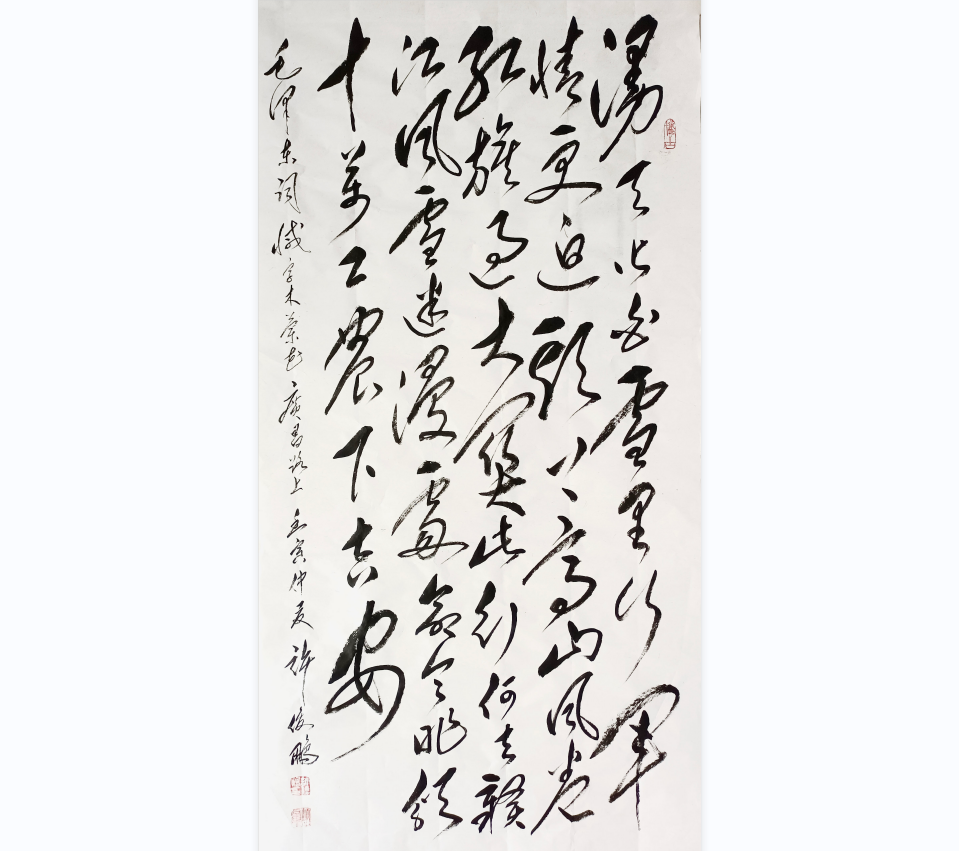 漫天皆白雪里行军
情更迫頭上高山風卷
红旗过大関此行何去赣
江風雪迷漫處命令昨颁
十萬工農下吉安
毛泽东词减字木兰花廣昌路上壬寅仲夏許俊鹏